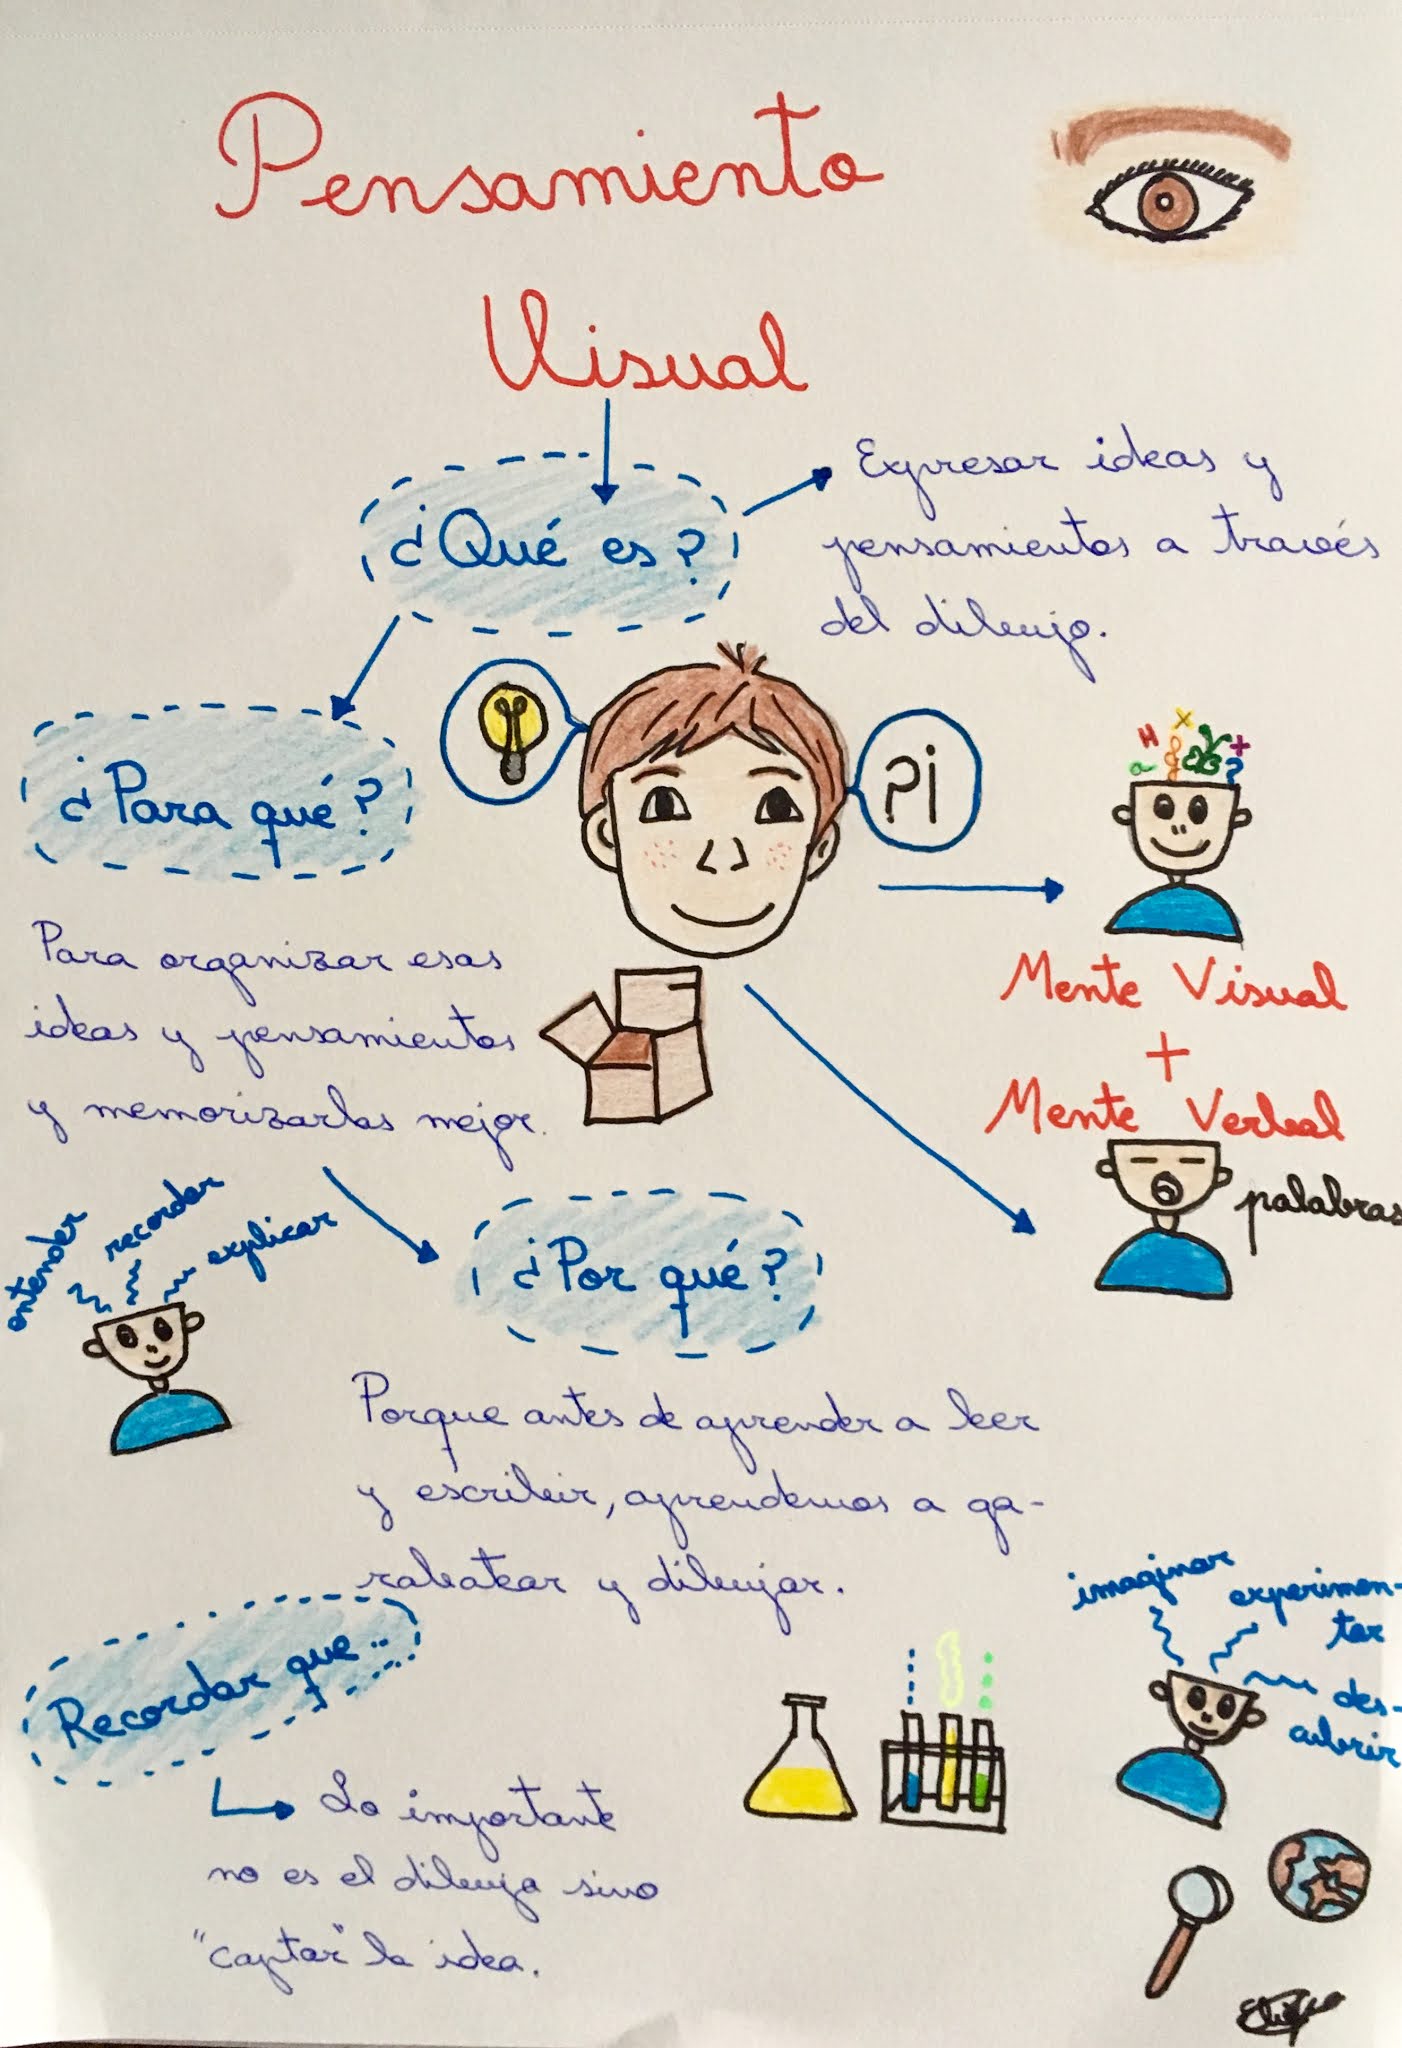 Pensamiento
Visual
¿Qué es?
Expresar ideas y
pensamientos a través
del dibujo.
¿Para qué?
?¡
Para organizar esas
ideas y pensamientos
y memorizarlas mejor.
Mente Visual
+
Mente Verbal
palabras
entender
recordar
explicar
¿Por qué?
Porque antes de aprender a leer
y escribir, aprendemos a ga-
rabatear y dibujar.
Recordar que...
Lo importante
no es el dibujo sino
"captar" la idea.
imaginar
experimen-
tar
des-
cubrir